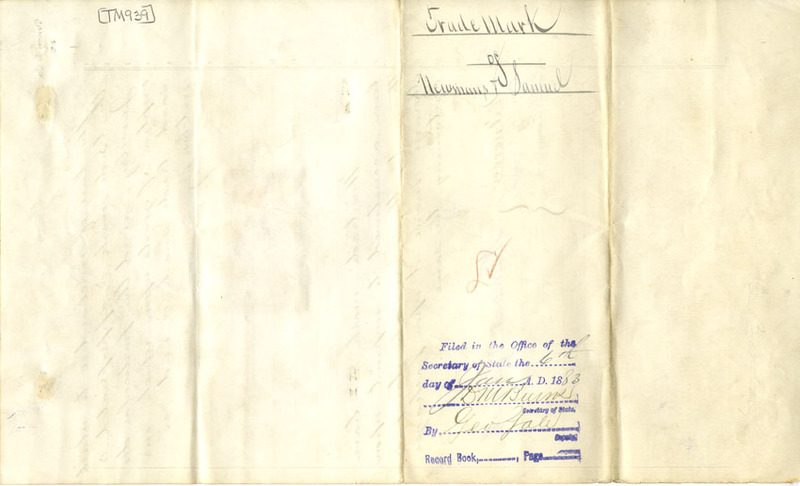 [TM939]
Trade Mark
of
Newmans & Samuel
Filed in the Office of the
Secretary of State the 6th
day of A. D. 1883
Secretary of State,
By Geo
Deputy.
Record Book, Page